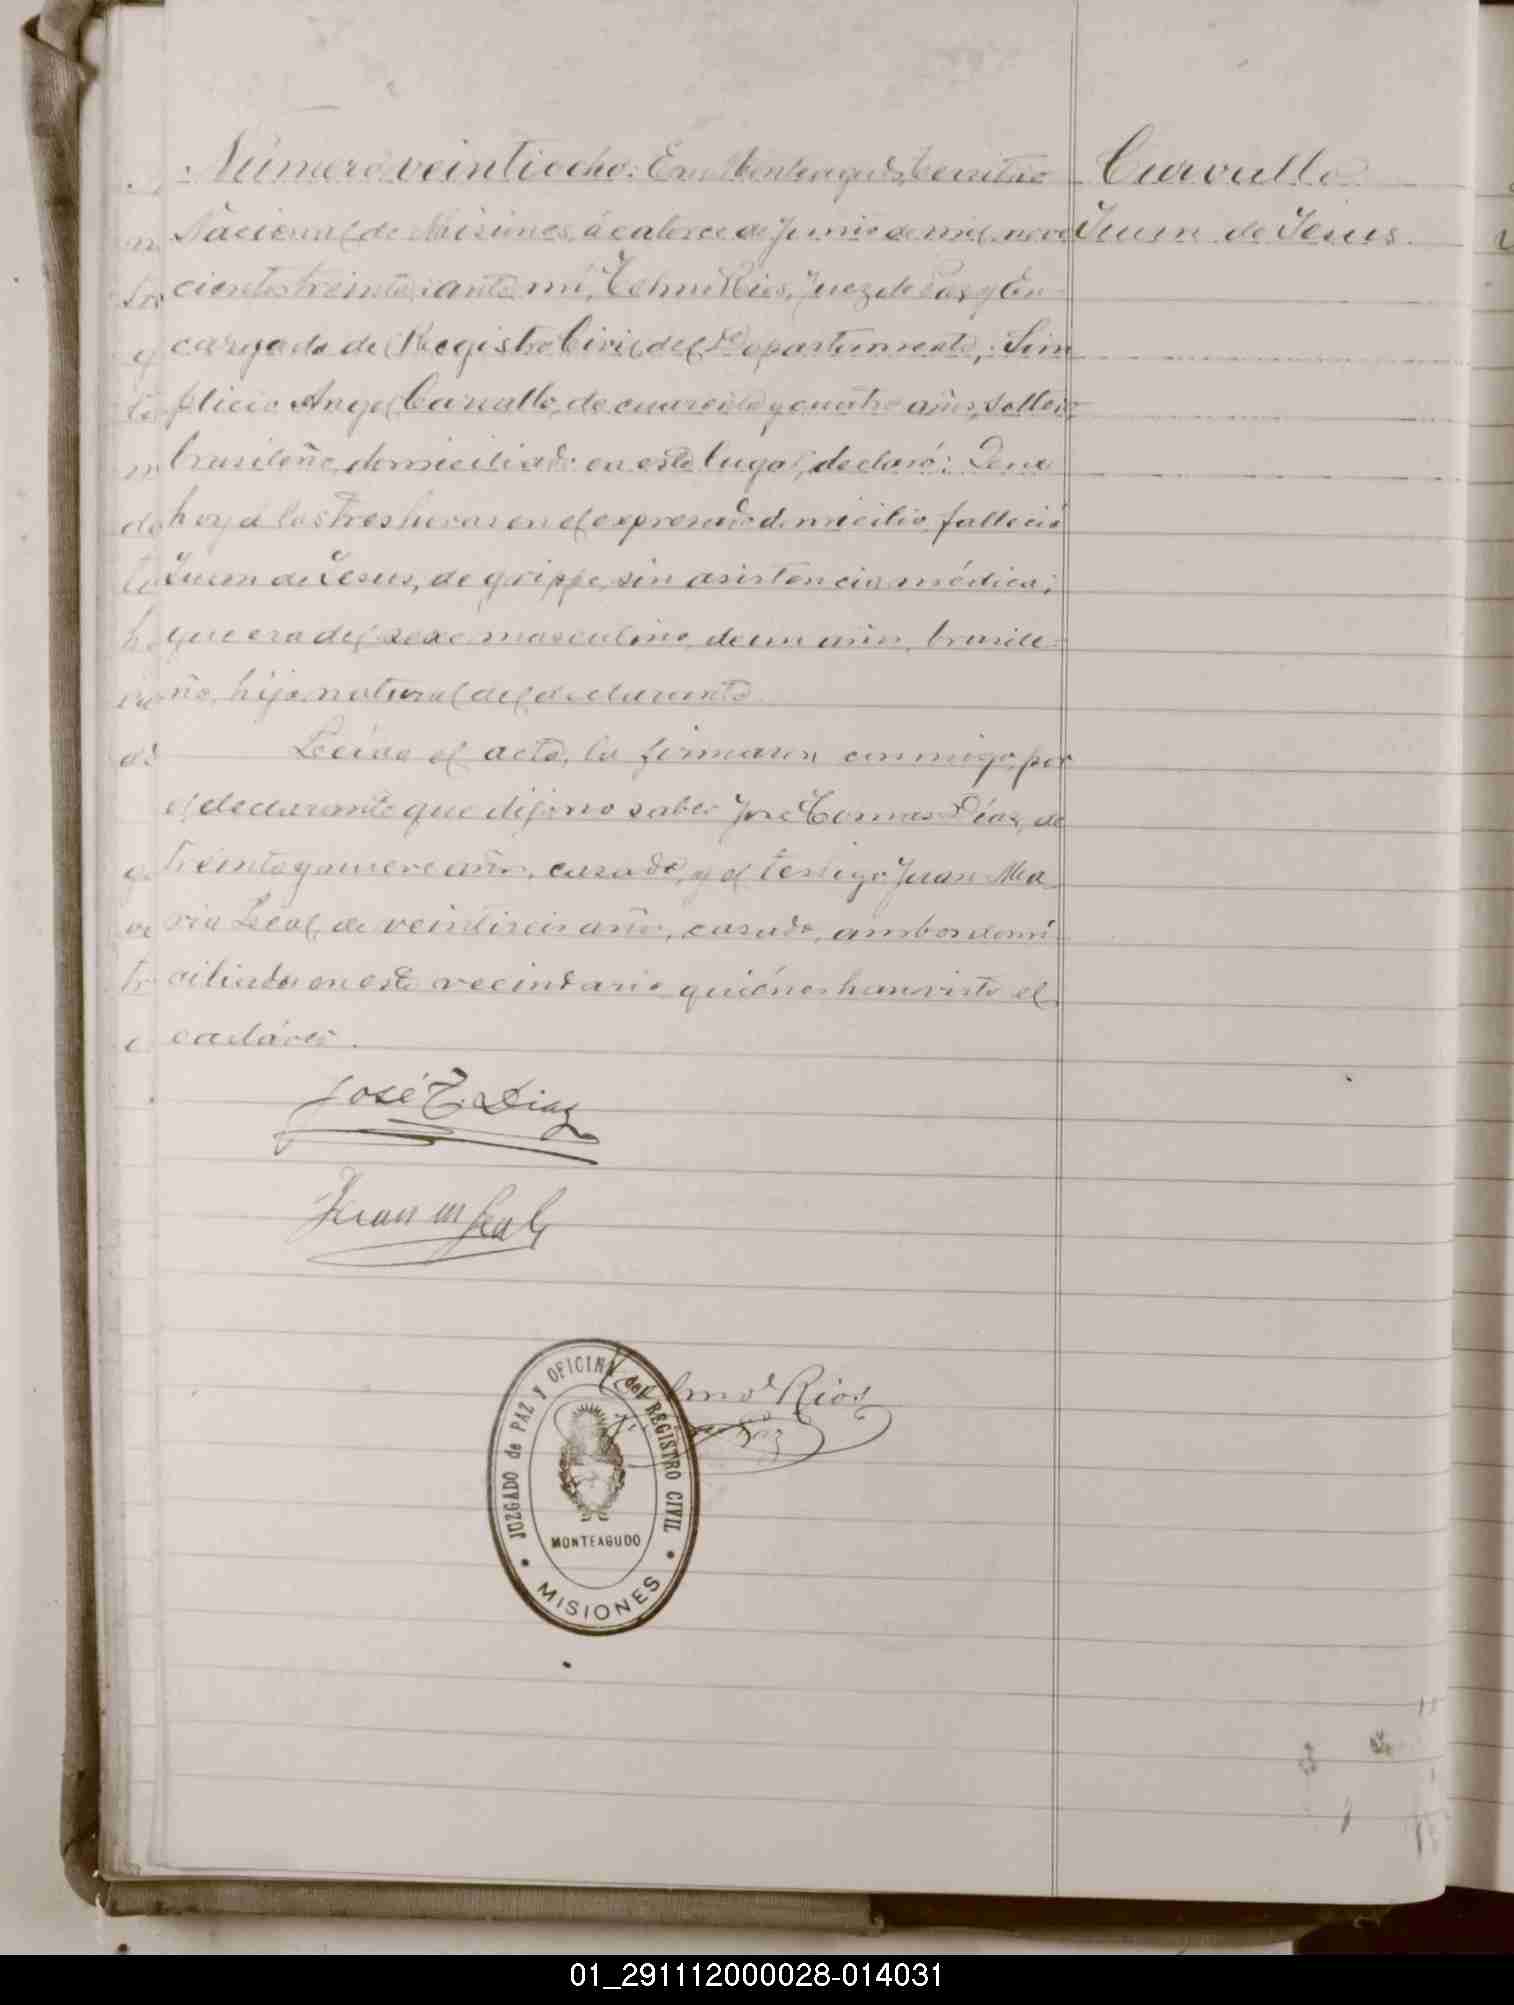 Número veintiocho: En Monteagudo, territorio
Carvallo
Nacional de Misiones, á catorce de Junio de mil nove
Juan de Jesus.
cientos treinta, ante mí, Telmo Rios, Juez de Paz y En
cargado del Registro Civil del Departamento, Sim
plicio Angel Carvallo, de cuarenta y cuatro años, soltero,
brasileño, domiciliado en este lugar, declaró: Que
hoy á las tres horas en el expresado domicilio, falleció
Juan de Jesus, de grippe, sin asistencia médica;
que era del sexo masculino, de un año, brasile-
ño, hijo natural del declarante.
Leída el acta, la firmaron conmigo, por
el declarante que dijo no saber José Tomas Díaz, de
treinta y nueve años, casado, y el testigo Juan Ma
ria Leal, de veintiseis años, casado, ambos domi-
ciliados en este vecindario quiénes han visto el
cadáver.
José T. Diaz
Juan M Leal
Telmo Rios
JUZGADO de PAZ Y OFICINA del REGISTRO CIVIL
MONTEAGUDO
MISIONES
01_291112000028-014031